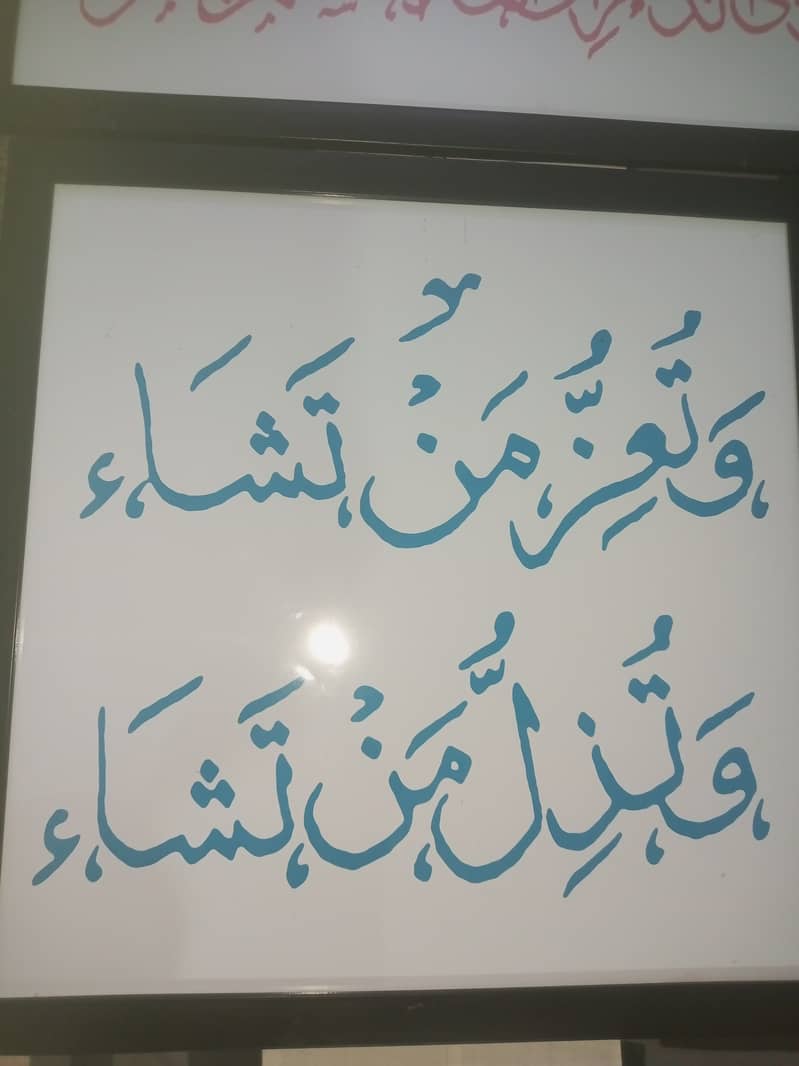 وَتُعِزُّ مَنْ تَشَاء
وَتُذِلُّ مَنْ تَشَاء